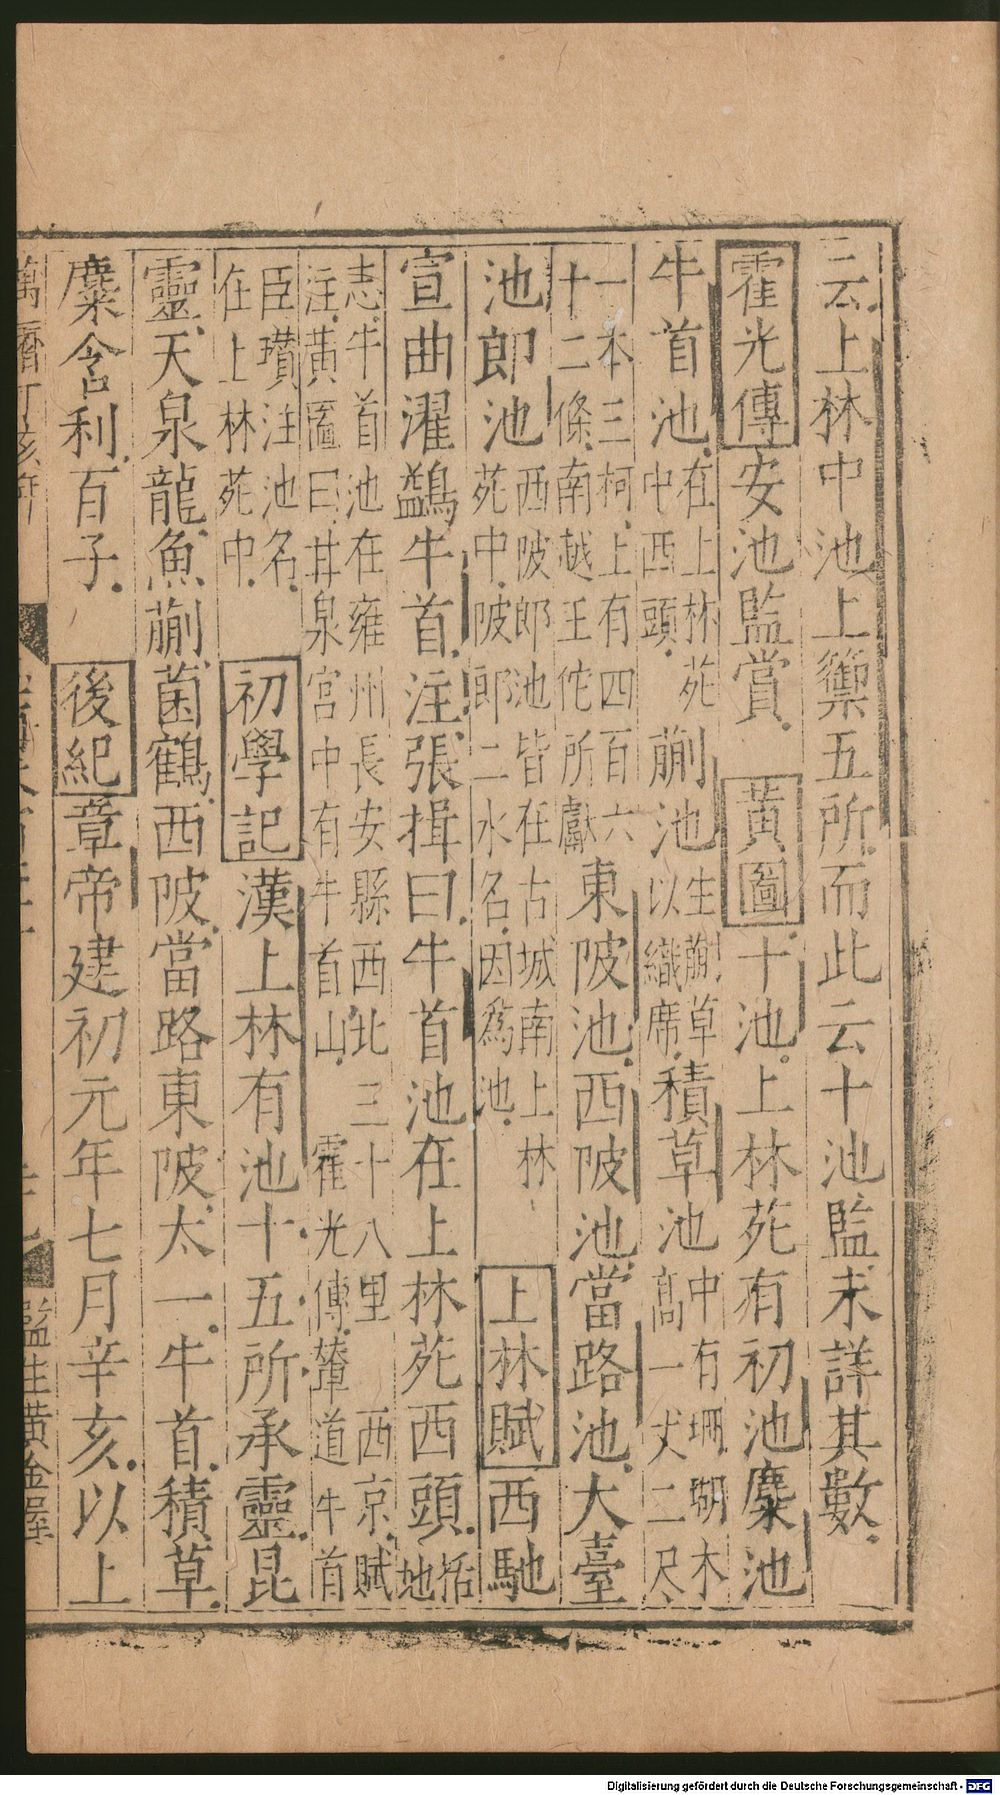 云上林中池上籞五所而此云十池監未詳其數
霍光傳安池監賞黃圖十池上林苑有初池麋池
牛首池在上林苑中西頭蒯池生蒯草以織席積草池中有珊瑚木高一丈二尺
一本三柯上有四百六十二條南越王佗所獻東陂池西陂池當路池大臺
池郎池西陂郎池皆在古城南上林苑中陂郎二水名因爲池上林賦西馳
宣曲濯鷁牛首注張揖曰牛首池在上林苑西頭括地
志牛首池在雍州長安縣西北三十八里西京賦注黃圖曰甘泉宮中有牛首山霍光傳輦道牛首
臣瓚注池名在上林苑中初學記漢上林有池十五所承靈昆
靈天泉龍魚蒯菌鶴西陂當路東陂太一牛首積草
麋含利百子後紀章帝建初元年七月辛亥以上
萬曆丁亥刊
監生黃金璽
Digitalisierung gefördert durch die Deutsche Forschungsgemeinschaft - DFG